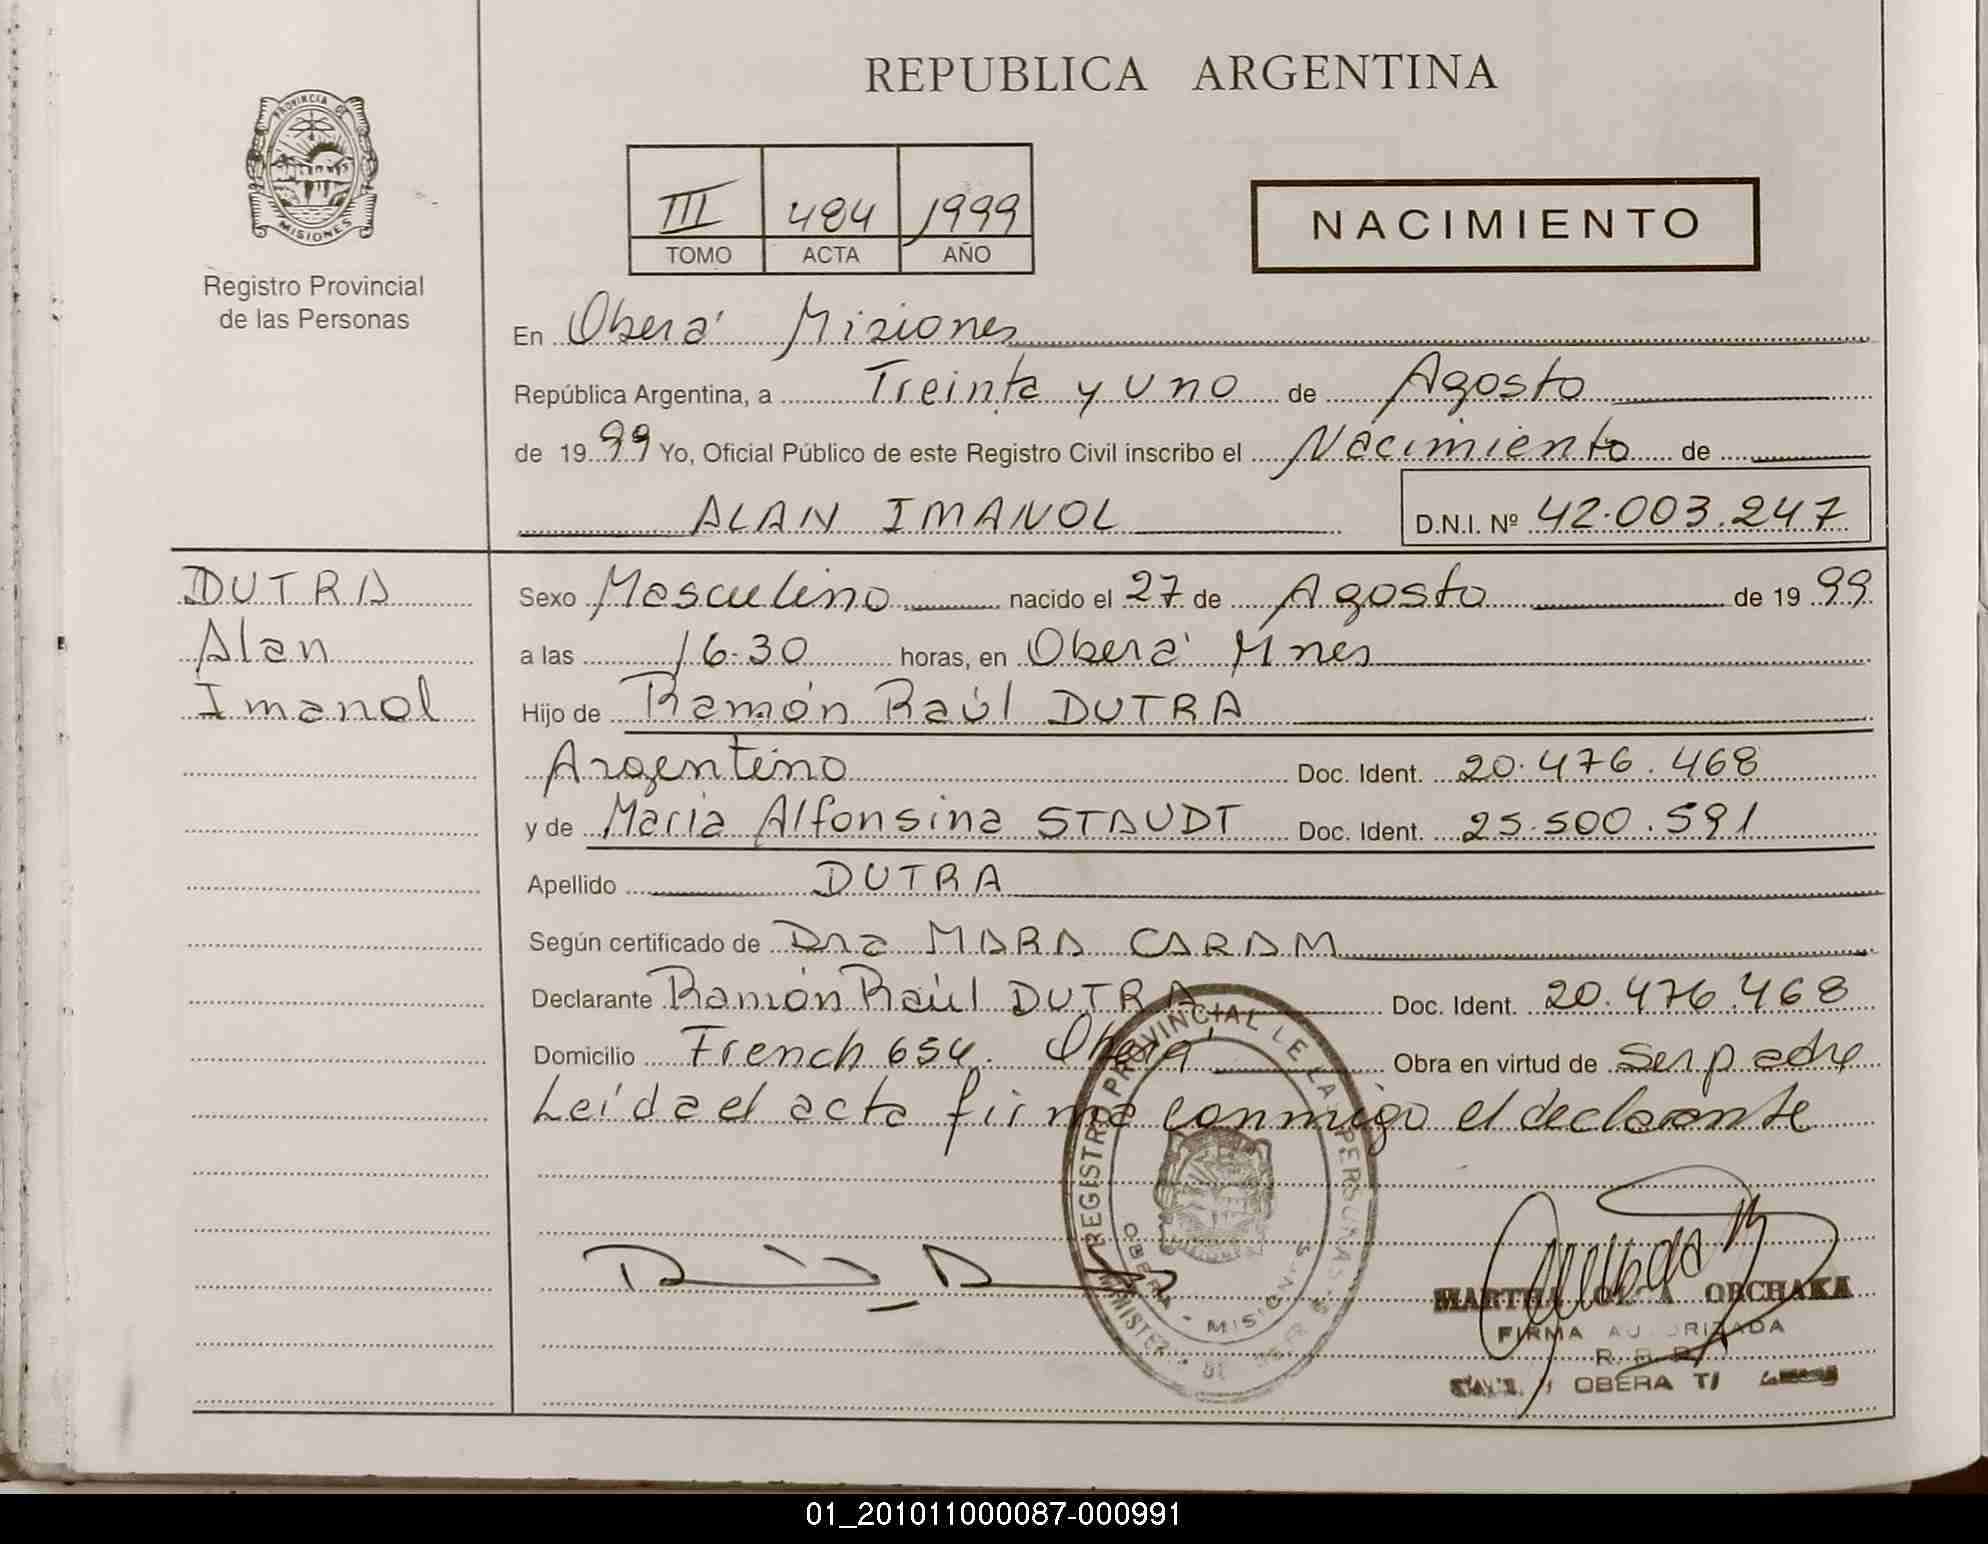 REPUBLICA ARGENTINA
PROVINCIA DE
MISIONES
Registro Provincial
de las Personas
III 484 1999
TOMO ACTA AÑO
NACIMIENTO
En Oberá Misiones
República Argentina, a Treinta y uno de Agosto
de 1999 Yo, Oficial Público de este Registro Civil inscribo el Nacimiento de
ALAN IMANOL D.N.I. Nº 42.003.247
DUTRA
Alan
Imanol
Sexo Masculino nacido el 27 de Agosto de 1999
a las 16.30 horas, en Oberá Mnes
Hijo de Ramón Raúl DUTRA
Argentino Doc. Ident. 20.476.468
y de Maria Alfonsina STAUDT Doc. Ident. 25.500.591
Apellido DUTRA
Según certificado de Dra MARA CARAM
Declarante Ramón Raúl DUTRA Doc. Ident. 20.476.468
Domicilio French 654. Oberá Obra en virtud de ser padre
Leída el acta firma conmigo el declarante
REGISTRO PROVINCIAL DE LAS PERSONAS
OBERA - MISIONES
MARTHA ORCHAKA
FIRMA AUTORIZADA
OBERA
01_201011000087-000991